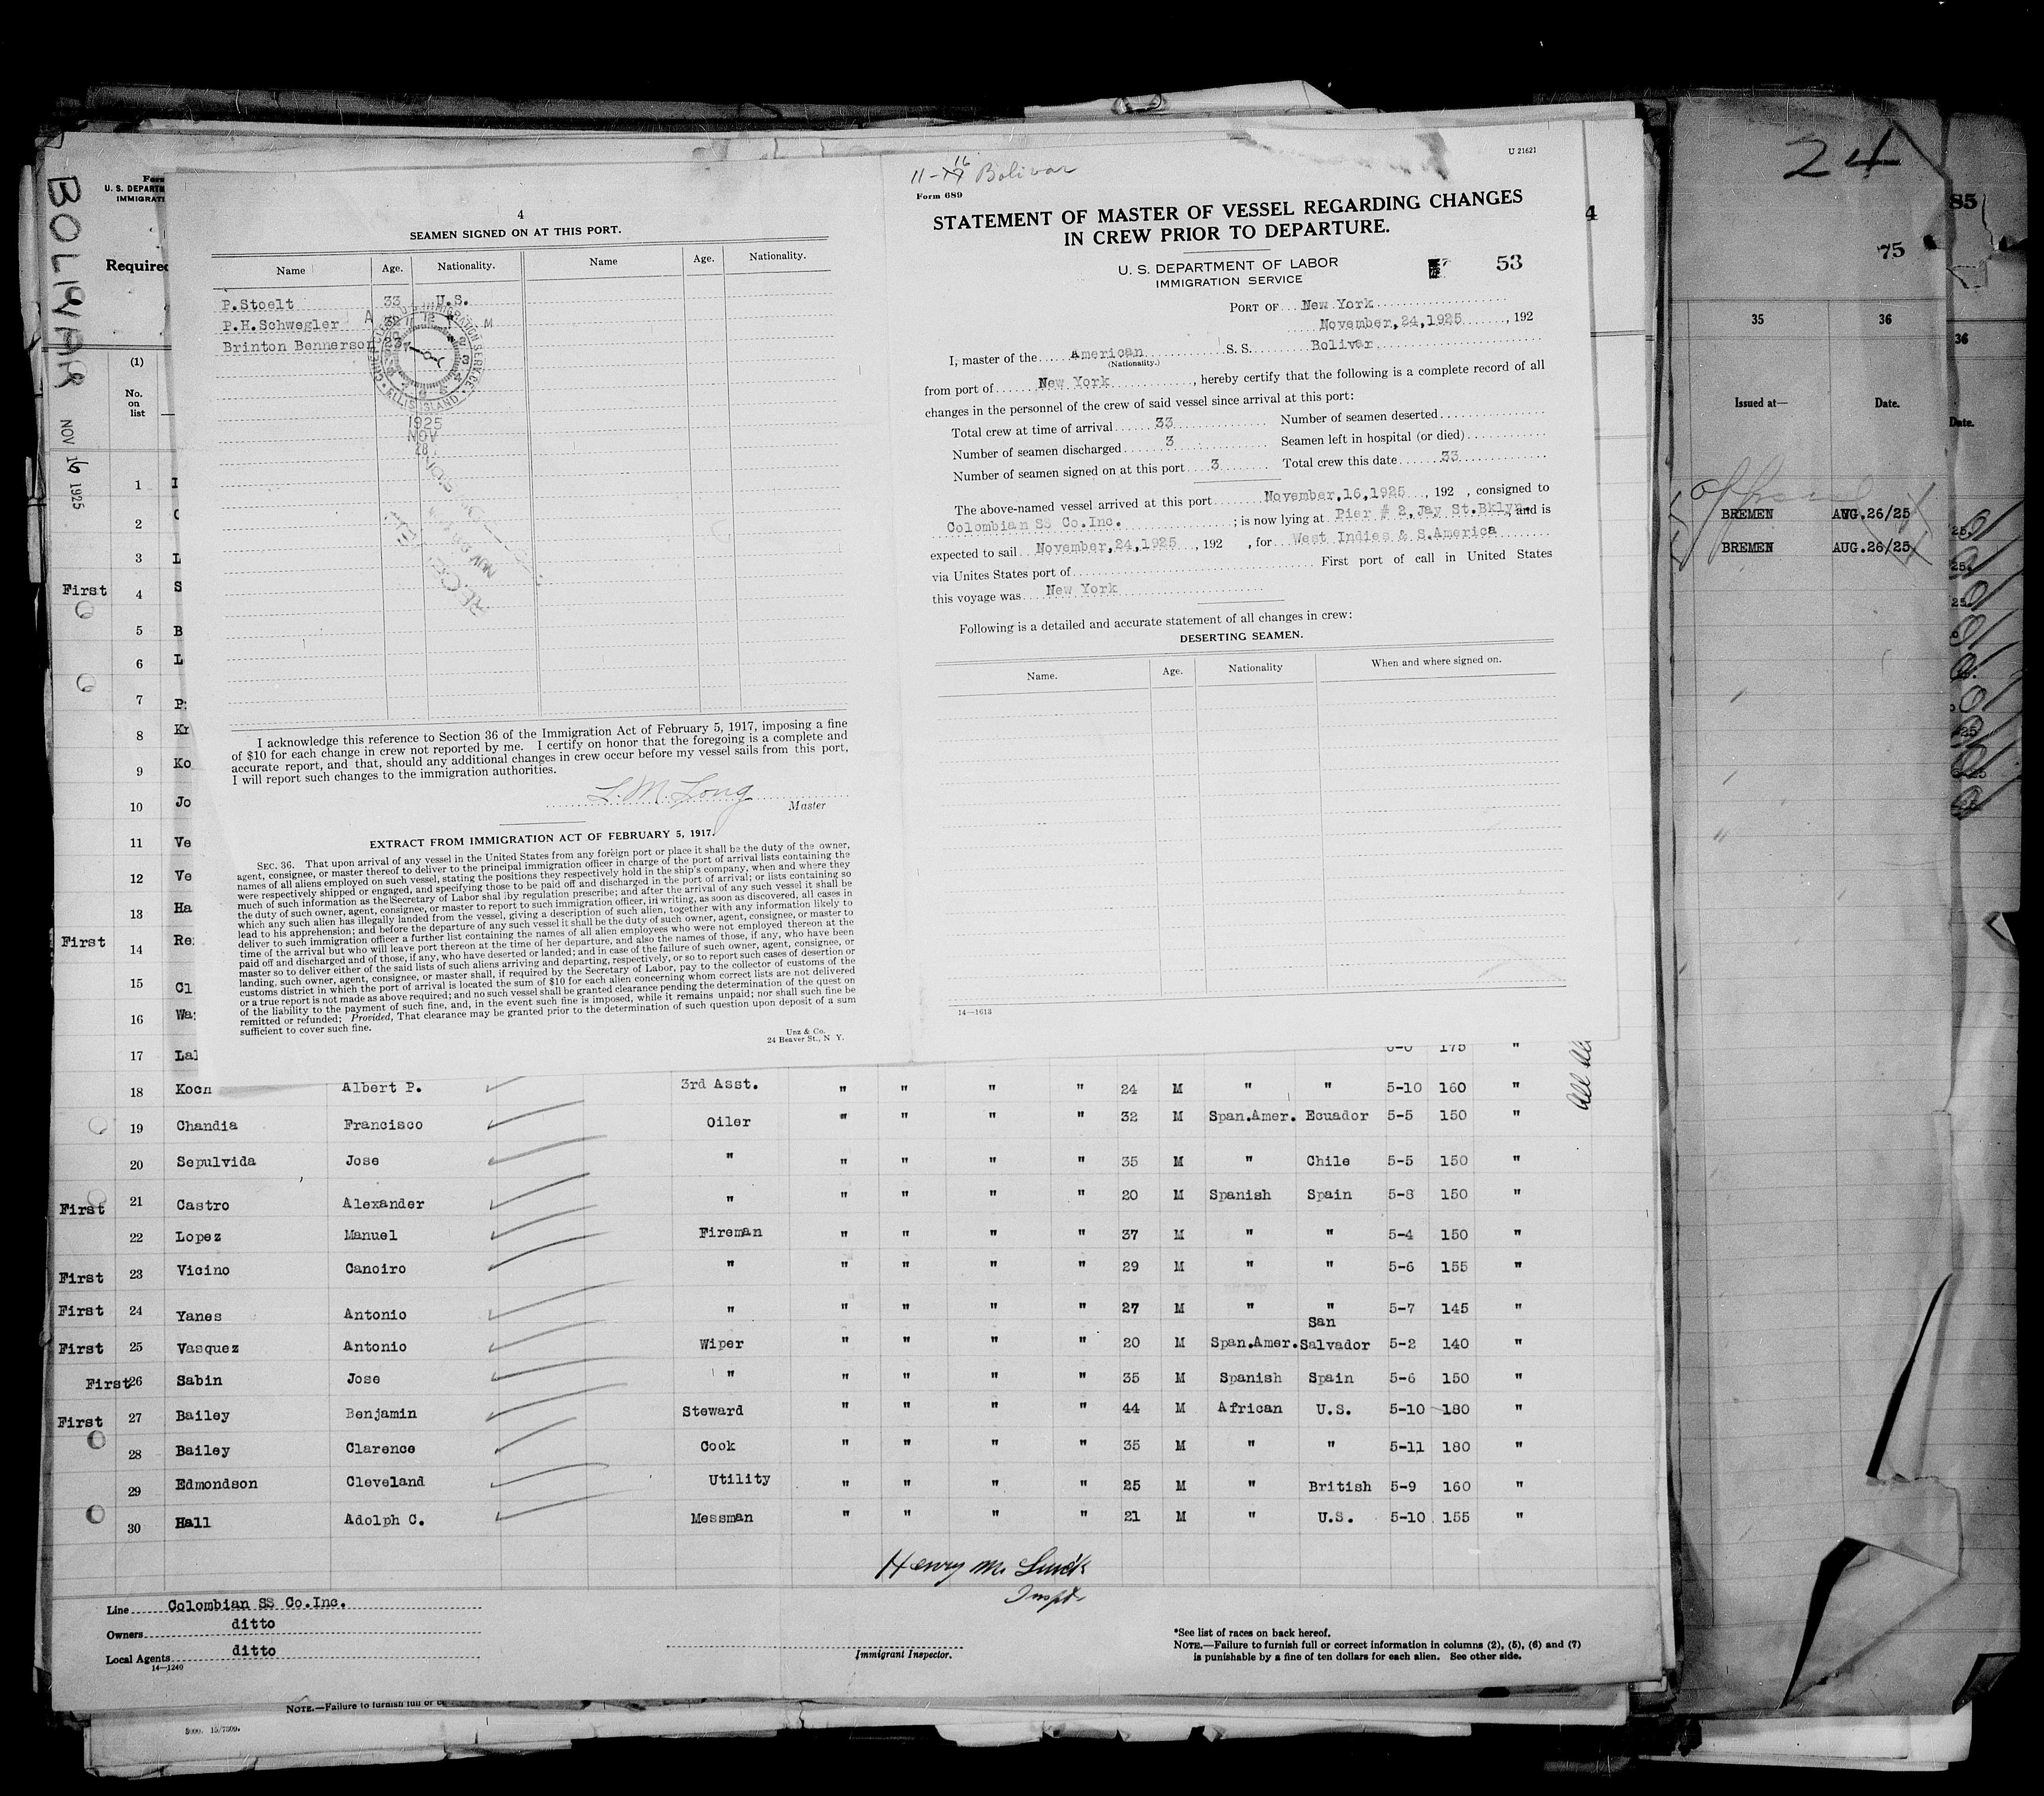 BOLIVAR NOV 16 1925
Form
U. S. DEPARTM
IMMIGRATI
Required
(1)
No.
on
list
4
SEAMEN SIGNED ON AT THIS PORT.
Name Age. Nationality. Name Age. Nationality.
P.Stoelt 33 U.S.
P.H.Schwegler 32
Brinton Bennerson 23
A M
IMMIGRATION SERVICE
ELLIS ISLAND
1925
NOV
28
I acknowledge this reference to Section 36 of the Immigration Act of February 5, 1917, imposing a fine
of $10 for each change in crew not reported by me. I certify on honor that the foregoing is a complete and
accurate report, and that, should any additional changes in crew occur before my vessel sails from this port,
I will report such changes to the immigration authorities.
L. M. Long
Master
EXTRACT FROM IMMIGRATION ACT OF FEBRUARY 5, 1917.
SEC. 36. That upon arrival of any vessel in the United States from any foreign port or place it shall be the duty of the owner,
agent, consignee, or master thereof to deliver to the principal immigration officer in charge of the port of arrival lists containing the
names of all aliens employed on such vessel, stating the positions they respectively hold in the ship's company, when and where they
were respectively shipped or engaged, and specifying those to be paid off and discharged in the port of arrival; or lists containing so
much of such information as the Secretary of Labor shal by regulation prescribe; and after the arrival of any such vessel it shall be
the duty of such owner, agent, consignee, or master to report to such immigration officer, in writing, as soon as discovered, all cases in
which any such alien has illegally landed from the vessel, giving a description of such alien, together with any information likely to
lead to his apprehension; and before the departure of any such vessel it shall be the duty of such owner, agent, consignee, or master to
deliver to such immigration officer a further list containing the names of all alien employees who were not employed thereon at the
time of the arrival but who will leave port thereon at the time of her departure, and also the names of those, if any, who have been
paid off and discharged and of those, if any, who have deserted or landed; and in case of the failure of such owner, agent, consignee, or
master so to deliver either of the said lists of such aliens arriving and departing, respectively, or so to report such cases of desertion or
landing, such owner, agent, consignee, or master shall, if required by the Secretary of Labor, pay to the collector of customs of the
customs district in which the port of arrival is located the sum of $10 for each alien concerning whom correct lists are not delivered
or a true report is not made as above required; and no such vessel shall be granted clearance pending the determination of the quest on
of the liability to the payment of such fine, and, in the event such fine is imposed, while it remains unpaid; nor shall such fine be
remitted or refunded; Provided, That clearance may be granted prior to the determination of such question upon deposit of a sum
sufficient to cover such fine.
Unz & Co.
24 Beaver St., N Y.
11-16 Bolivar
U 21621
Form 689
STATEMENT OF MASTER OF VESSEL REGARDING CHANGES
IN CREW PRIOR TO DEPARTURE.
U. S. DEPARTMENT OF LABOR
IMMIGRATION SERVICE
53
PORT OF New York
November,24,1925, 192
I, master of the American S. S. Bolivar
(Nationality.)
from port of New York, hereby certify that the following is a complete record of all
changes in the personnel of the crew of said vessel since arrival at this port:
Total crew at time of arrival 33 Number of seamen deserted
Number of seamen discharged 3 Seamen left in hospital (or died)
Number of seamen signed on at this port 3 Total crew this date 33
The above-named vessel arrived at this port November,16,1925, 192 , consigned to
Colombian SS Co.Inc. ; is now lying at Pier # 2,Jay St.Bklyn., and is
expected to sail November,24,1925, 192 , for West Indies & S.America
via Unites States port of First port of call in United States
this voyage was New York
Following is a detailed and accurate statement of all changes in crew:
DESERTING SEAMEN.
Name. Age. Nationality When and where signed on.
14—1613
4
24
85
75
35 36
36
Issued at— Date.
Date.
BREMEN AUG.26/25
BREMEN AUG.26/25
1
2
3 L
First 4 S
5 B
6 L
7 P
8 Kr
9 Ko
10 Jo
11 Ve
12 Ve
13 Ha
First 14 Re
15 Cl
16 Wa
17 Lal 175 "
18 Koch Albert P. 3rd Asst. " " " " 24 M " " 5-10 160 "
19 Chandia Francisco Oiler " " " " 32 M Span.Amer. Ecuador 5-5 150 "
20 Sepulvida Jose " " " " " 35 M " Chile 5-5 150 "
First 21 Castro Alexander " " " " " 20 M Spanish Spain 5-8 150 "
22 Lopez Manuel Fireman " " " " 37 M " " 5-4 150 "
First 23 Vicino Canoiro " " " " " 29 M " " 5-6 155 "
First 24 Yanes Antonio " " " " " 27 M " " 5-7 145 "
First 25 Vasquez Antonio Wiper " " " " 20 M Span.Amer. San Salvador 5-2 140 "
First 26 Sabin Jose " " " " " 35 M Spanish Spain 5-6 150 "
First 27 Bailey Benjamin Steward " " " " 44 M African U.S. 5-10 180 "
28 Bailey Clarence Cook " " " " 35 M " " 5-11 180 "
29 Edmondson Cleveland Utility " " " " 25 M " British 5-9 160 "
30 Hall Adolph C. Messman " " " " 21 M " U.S. 5-10 155 "
Henry M.
Inspt.
Line Colombian SS Co.Inc.
Owners ditto
Local Agents ditto
14—1240
Immigrant Inspector.
*See list of races on back hereof.
NOTE.—Failure to furnish full or correct information in columns (2), (5), (6) and (7)
is punishable by a fine of ten dollars for each alien. See other side.
NOTE.—Failure to furnish full or